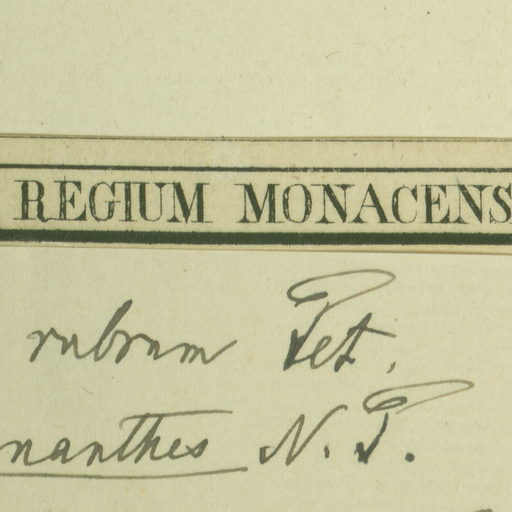 REGIUM MONACENS
rubrum Pet.
nanthes N. P.